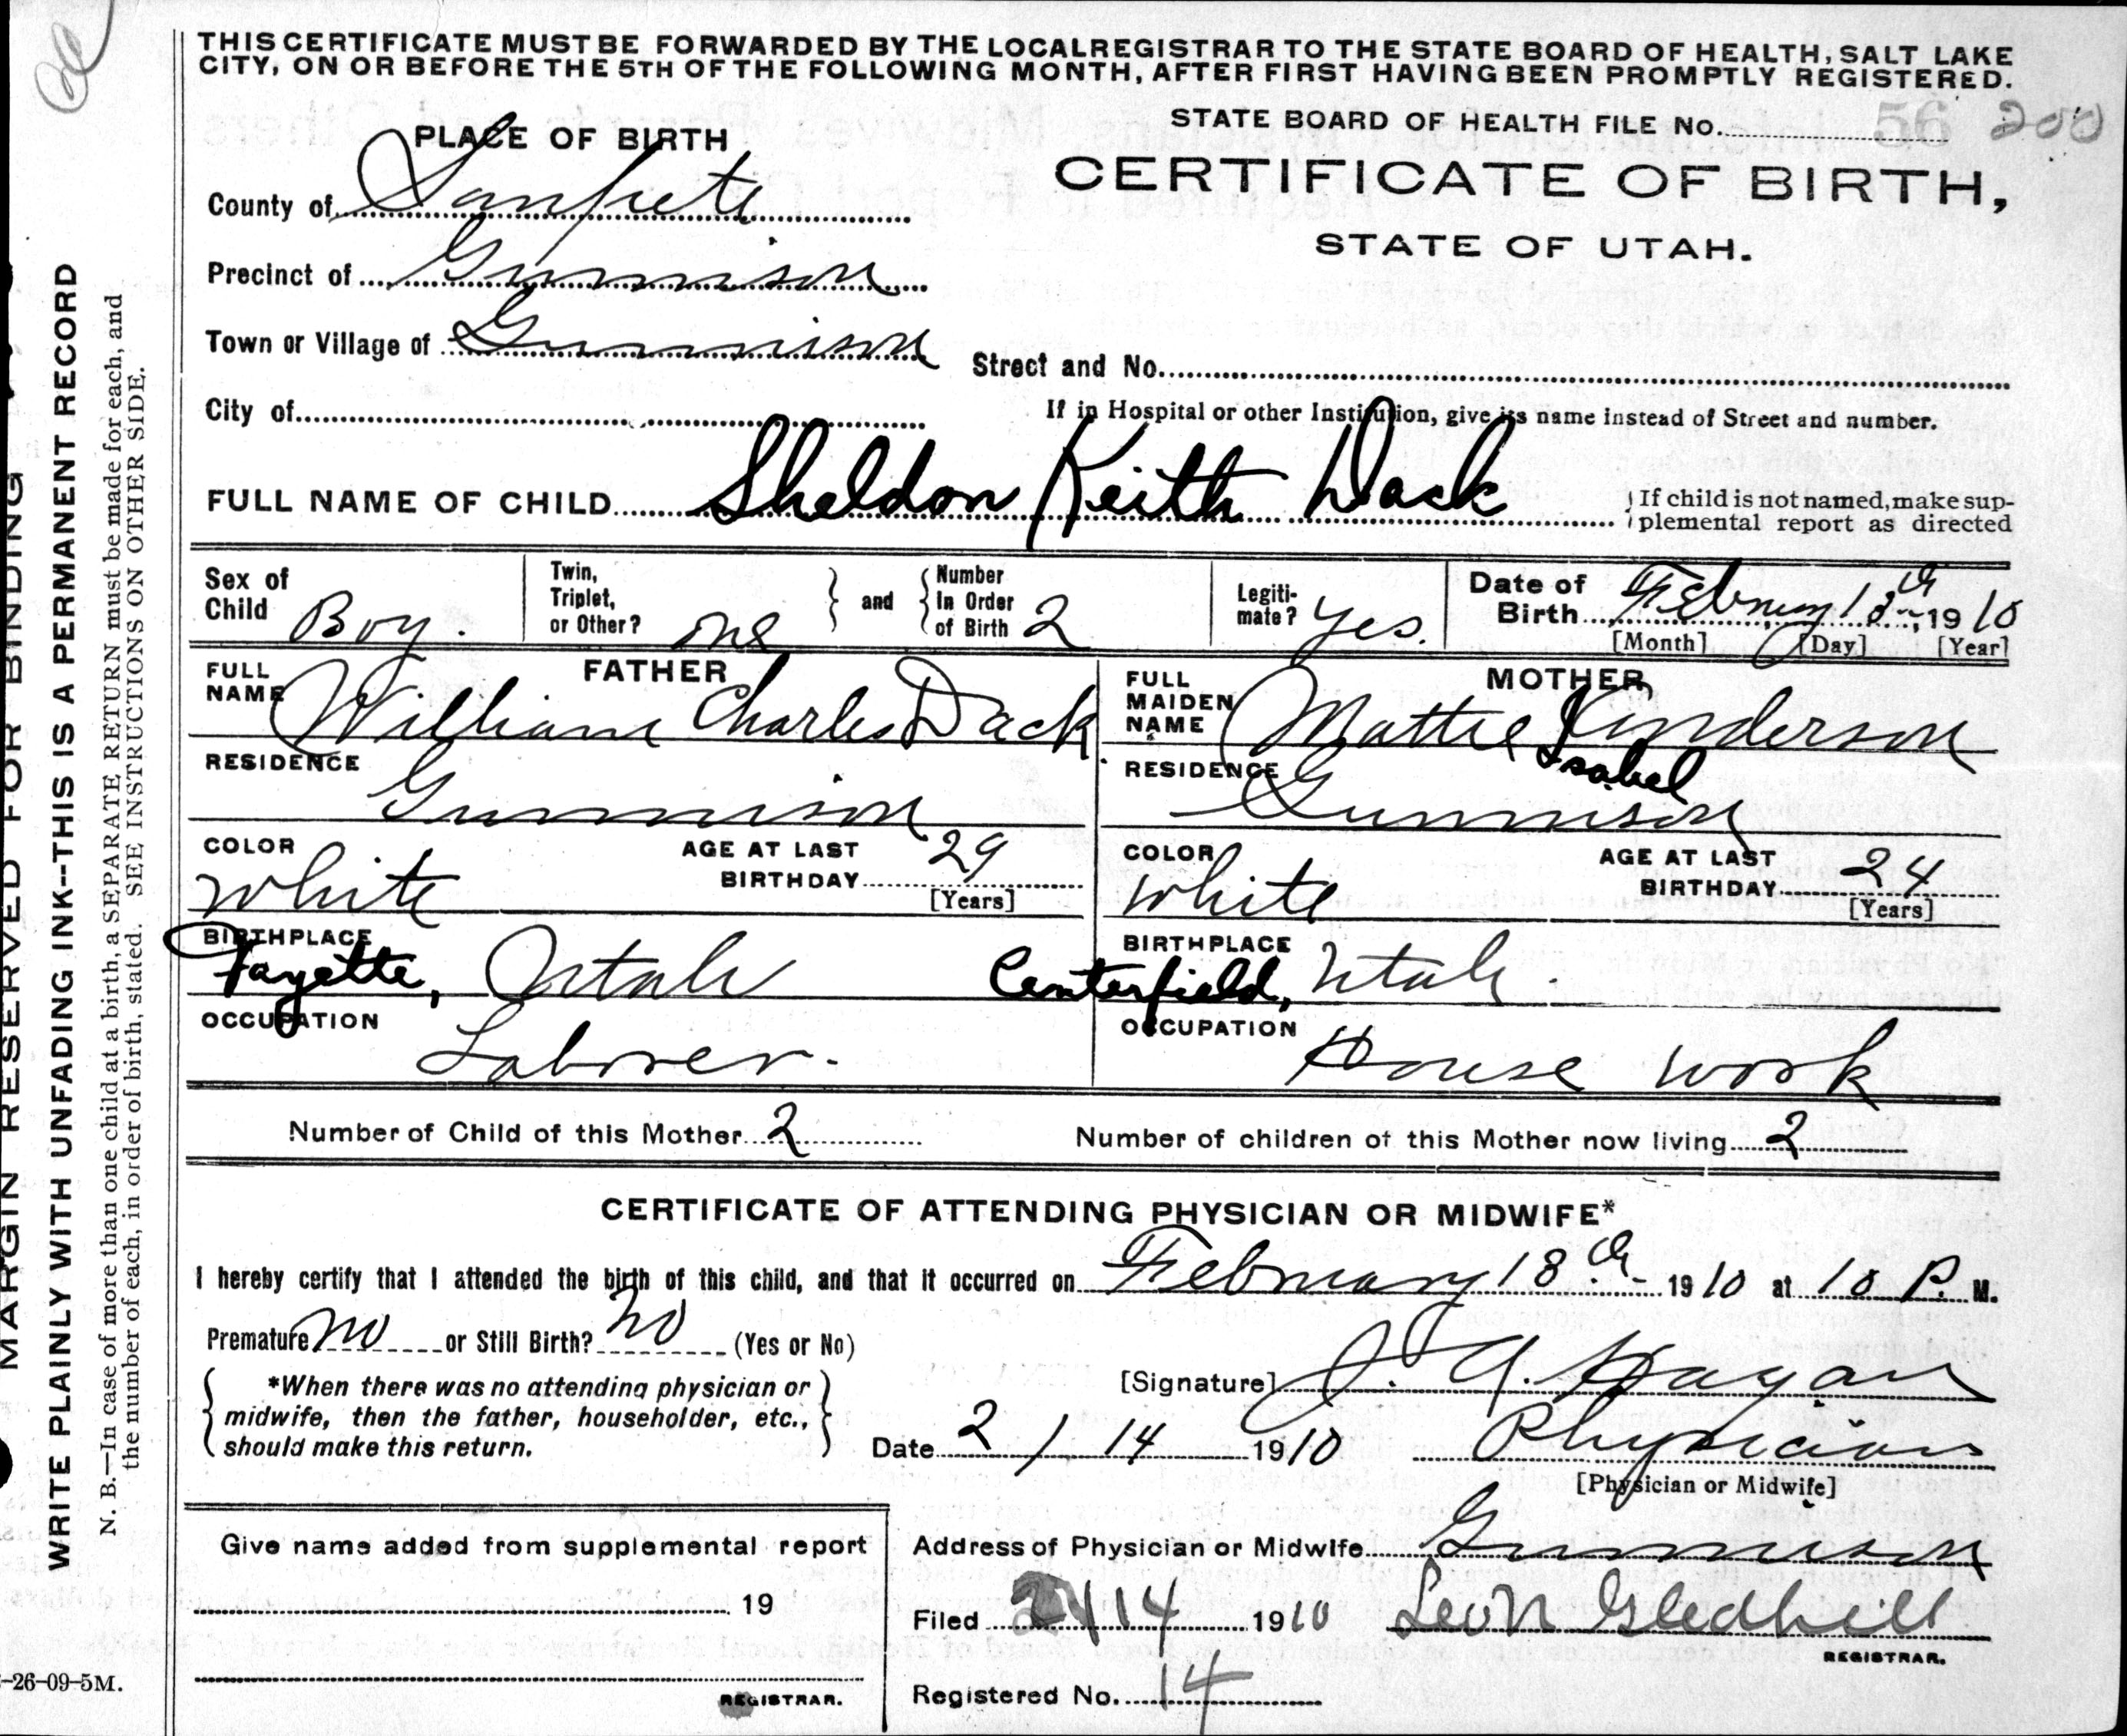 THIS CERTIFICATE MUST BE FORWARDED BY THE LOCAL REGISTRAR TO THE STATE BOARD OF HEALTH, SALT LAKE
CITY, ON OR BEFORE THE 5TH OF THE FOLLOWING MONTH, AFTER FIRST HAVING BEEN PROMPTLY REGISTERED.
STATE BOARD OF HEALTH FILE No. 56 200
PLACE OF BIRTH
CERTIFICATE OF BIRTH,
STATE OF UTAH.
County of Sanpete
Precinct of Gunnison
Town or Village of Gunnison
Street and No.
City of
If in Hospital or other Institution, give its name instead of Street and number.
FULL NAME OF CHILD Sheldon Keith Dack
If child is not named, make sup-
plemental report as directed
Sex of Child Boy.
Twin, Triplet, or Other? one
and
Number In Order of Birth 2
Legiti-
mate? Yes.
Date of Birth February 18th 1910
[Month] [Day] [Year]
FATHER
FULL NAME William Charles Dack.
RESIDENCE
Gunnison
COLOR White
AGE AT LAST BIRTHDAY 29
[Years]
BIRTHPLACE
Fayette, Utah
OCCUPATION
Laborer.
MOTHER
FULL MAIDEN NAME Mattie Anderson
Isabel
RESIDENCE
Gunnison
COLOR White
AGE AT LAST BIRTHDAY 24
[Years]
BIRTHPLACE
Centerfield, Utah.
OCCUPATION
House work
Number of Child of this Mother 2
Number of children of this Mother now living 2
CERTIFICATE OF ATTENDING PHYSICIAN OR MIDWIFE*
I hereby certify that I attended the birth of this child, and that it occurred on February 18th 1910 at 10 P. M.
Premature no or Still Birth? no (Yes or No)
*When there was no attending physician or
midwife, then the father, householder, etc.,
should make this return.
[Signature] J. A. Hagan
Date 2/14 1910
Physician
[Physician or Midwife]
Address of Physician or Midwife Gunnison
Give name added from supplemental report
19
REGISTRAR.
Filed 2/14 1910 Leon Gledhill
REGISTRAR.
Registered No. 14
MARGIN RESERVED FOR BINDING
WRITE PLAINLY WITH UNFADING INK--THIS IS A PERMANENT RECORD
N. B.—In case of more than one child at a birth, a SEPARATE RETURN must be made for each, and
the number of each, in order of birth, stated. SEE INSTRUCTIONS ON OTHER SIDE.
-26-09-5M.